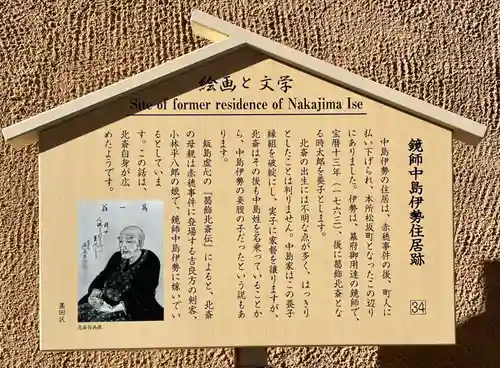 絵画と文学
Site of former residence of Nakajima Ise
鏡師中島伊勢住居跡
34
中島伊勢の住居は、赤穂事件の後、町人に
払い下げられ、本所松坂町となったこの辺り
にありました。伊勢は、幕府御用達の鏡師で、
宝暦十三年（一七六三）、後に葛飾北斎とな
る時太郎を養子とします。
北斎の出生には不明な点が多く、はっきり
としたことは判りません。中島家はこの養子
縁組を破綻にし、実子に家督を譲りますが、
北斎はその後も中島姓を名乗っていることか
ら、中島伊勢の妾腹の子だったという説もあ
ります。
飯島虚心の「葛飾北斎伝」によると、北斎
の母親は赤穂事件に登場する吉良方の剣客、
小林平八郎の娘で、鏡師中島伊勢に嫁いでい
るとしていま
す。この話は、
北斎自身が広
めたようです。
墨田区
北斎自画像